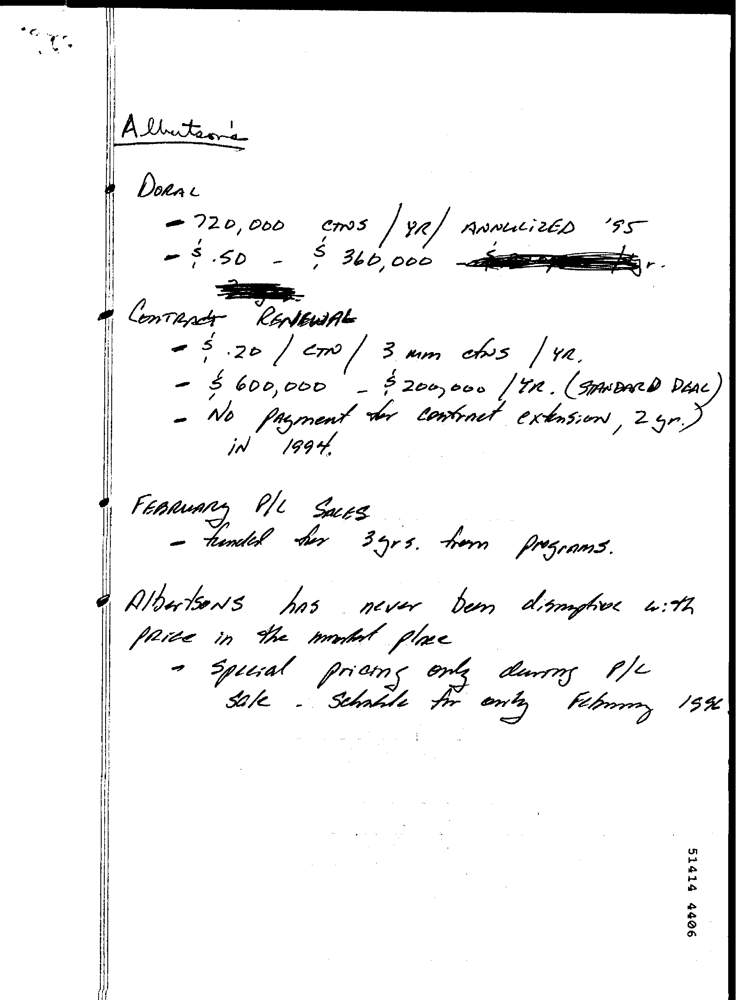 Albertson's
• DORAL
- 720,000 CTNS / YR / ANNULIZED '95
- $ .50 - $ 360,000 - yr.
• CONTRACT RENEWAL
- $ .20 / CTN / 3 mm ctns / YR.
- $ 600,000 - $ 200,000 / YR. (STANDARD DEAL)
- No payment for contract extension, 2 yr.)
IN 1994.
• FEBRUARY P/L SALES
- funded for 3 yrs. from programs.
• AlbertsONS has never been disruptive with
price in the market place
- Special pricing only during P/L
Sale - for early February 1996
51414 4406